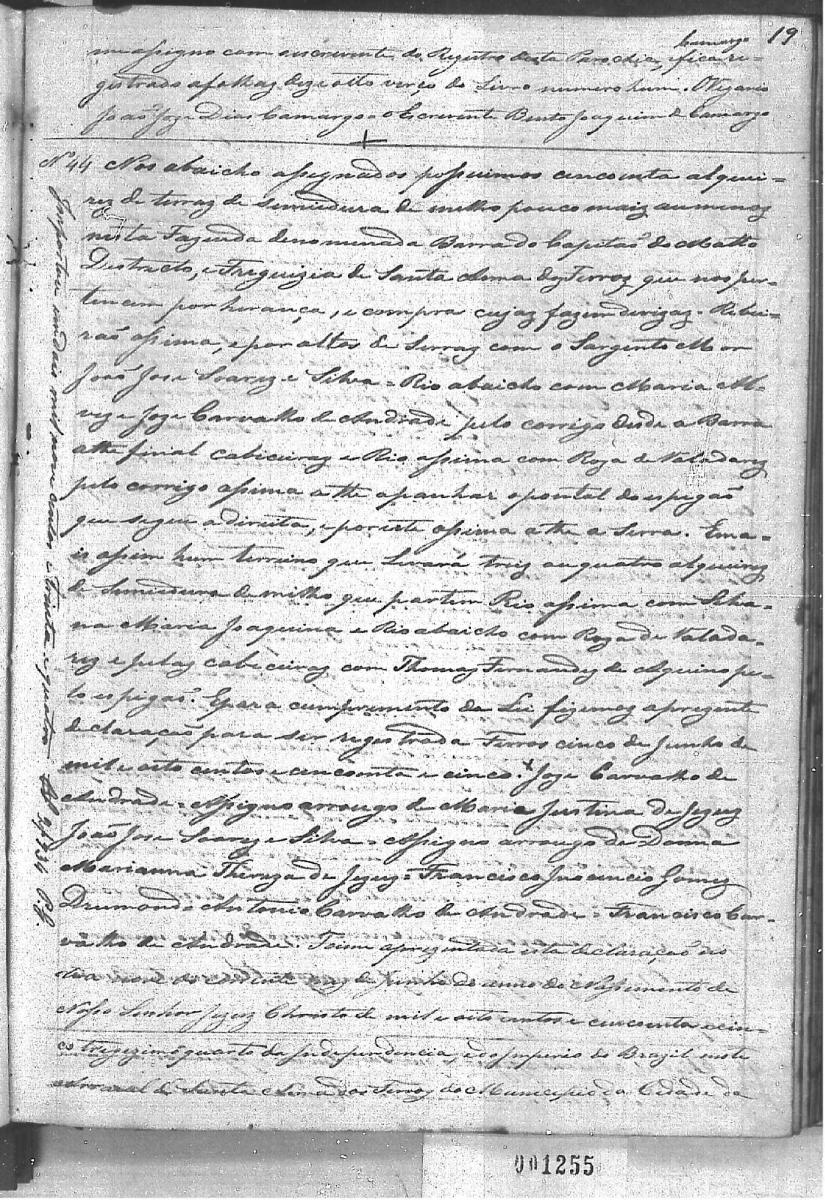 Camargo 19
me assigno com o escrevente do Registro desta Parochia, e fica re-
gistrado a folhaz dezeoito verço do Livro numero hum. O Vigario
João Joze Dias Camargo o Escrevente Bento Joaquim de Camargo
Nº 44 Nos abaicho assegnados possuimos cincoenta alquei-
rez de terraz de semiadura de milho pouco maiz au menoz
nesta Fazenda denominada Barra do Capitaõ do Matto
Destracto, e Freguizia de Santa Anna doz Ferroz que nos per-
tencem por herança, e compra cujaz fazem devizaz - Ribei-
raõ assima, e por altos de Serraz com o Sargento Mor
João Jose Soarez e Silva = Rio abaicho com Maria Al-
vez e Joze Carvalho de Andrade pelo corrigo desde a Barra
athe final cabiceiraz e Rio assima com Roza de Valadarez
pelo corrigo assima athe apanhar o pontal do espigaõ
que segue a direita, e por este assima athe a Serra. E ma-
is assim hum terreino que levará trez au quatro alqueirez
de semiadura de milho que partem Rio assima com Silva-
na Maria Joaquina e Rio abaicho com Roza de Valada-
rez e pelaz cabiceiraz com Thomaz Fernandez de Aquino pe-
lo espigaõ. E para cumprimento da Lei fizemoz a prezente
declaração para ser regestrada Ferros cinco de Junho de
mil e oito centos e cincoenta e cinco. Joze Carvalho de
Andrade = Assigno arrougo de Maria Justina de Jezuz
João Jose Soarez e Silva = Assigno arrougo de Donna
Marianna Thereza de Jezuz = Francisco Inocencio Gomez
Drumond = Antonio Carvalho de Andrade = Francisco Car-
valho de Andrade. Foime aprezentada esta declaraçaõ no
dia nove do corrente mez de Junho do anno do Nassimento de
Nosso Senhor Jezuz Christo de mil e oito centos e cincoenta e cin-
co trigezimo quarto da Independencia, e do Imperio do Brazil neste
Arraial de Santa Anna dos Ferroz do Municipio da Cidade da
Importou em dois mil nove centos e trinta e quatro 2$934
001255